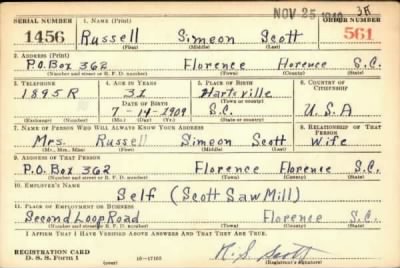 NOV 25 1940 3K
SERIAL NUMBER 1. NAME (Print) ORDER NUMBER
1456 Russell Simeon Scott 561
(First) (Middle) (Last)
2. ADDRESS (Print)
P.O. Box 362 Florence Florence S.C.
(Number and street or R. F. D. number) (Town) (County) (State)
3. TELEPHONE 4. AGE IN YEARS 5. PLACE OF BIRTH 6. COUNTRY OF CITIZENSHIP
1895R 31 Hartsville
DATE OF BIRTH (Town or county)
7-14-1909 S.C. U.S.A
(Exchange) (Number) (Mo.) (Day) (Yr.) (State or country)
7. NAME OF PERSON WHO WILL ALWAYS KNOW YOUR ADDRESS 8. RELATIONSHIP OF THAT PERSON
Mrs. Russell Simeon Scott Wife
(Mr., Mrs., Miss) (First) (Middle) (Last)
9. ADDRESS OF THAT PERSON
P.O. Box 362 Florence Florence S.C.
(Number and street or R. F. D. number) (Town) (County) (State)
10. EMPLOYER'S NAME
Self (Scott Saw Mill)
11. PLACE OF EMPLOYMENT OR BUSINESS
Second Loop Road Florence S.C.
(Number and street or R. F. D. number) (Town) (County) (State)
I AFFIRM THAT I HAVE VERIFIED ABOVE ANSWERS AND THAT THEY ARE TRUE.
REGISTRATION CARD
D. S. S. Form 1 (over) 16-17105 R. S. Scott